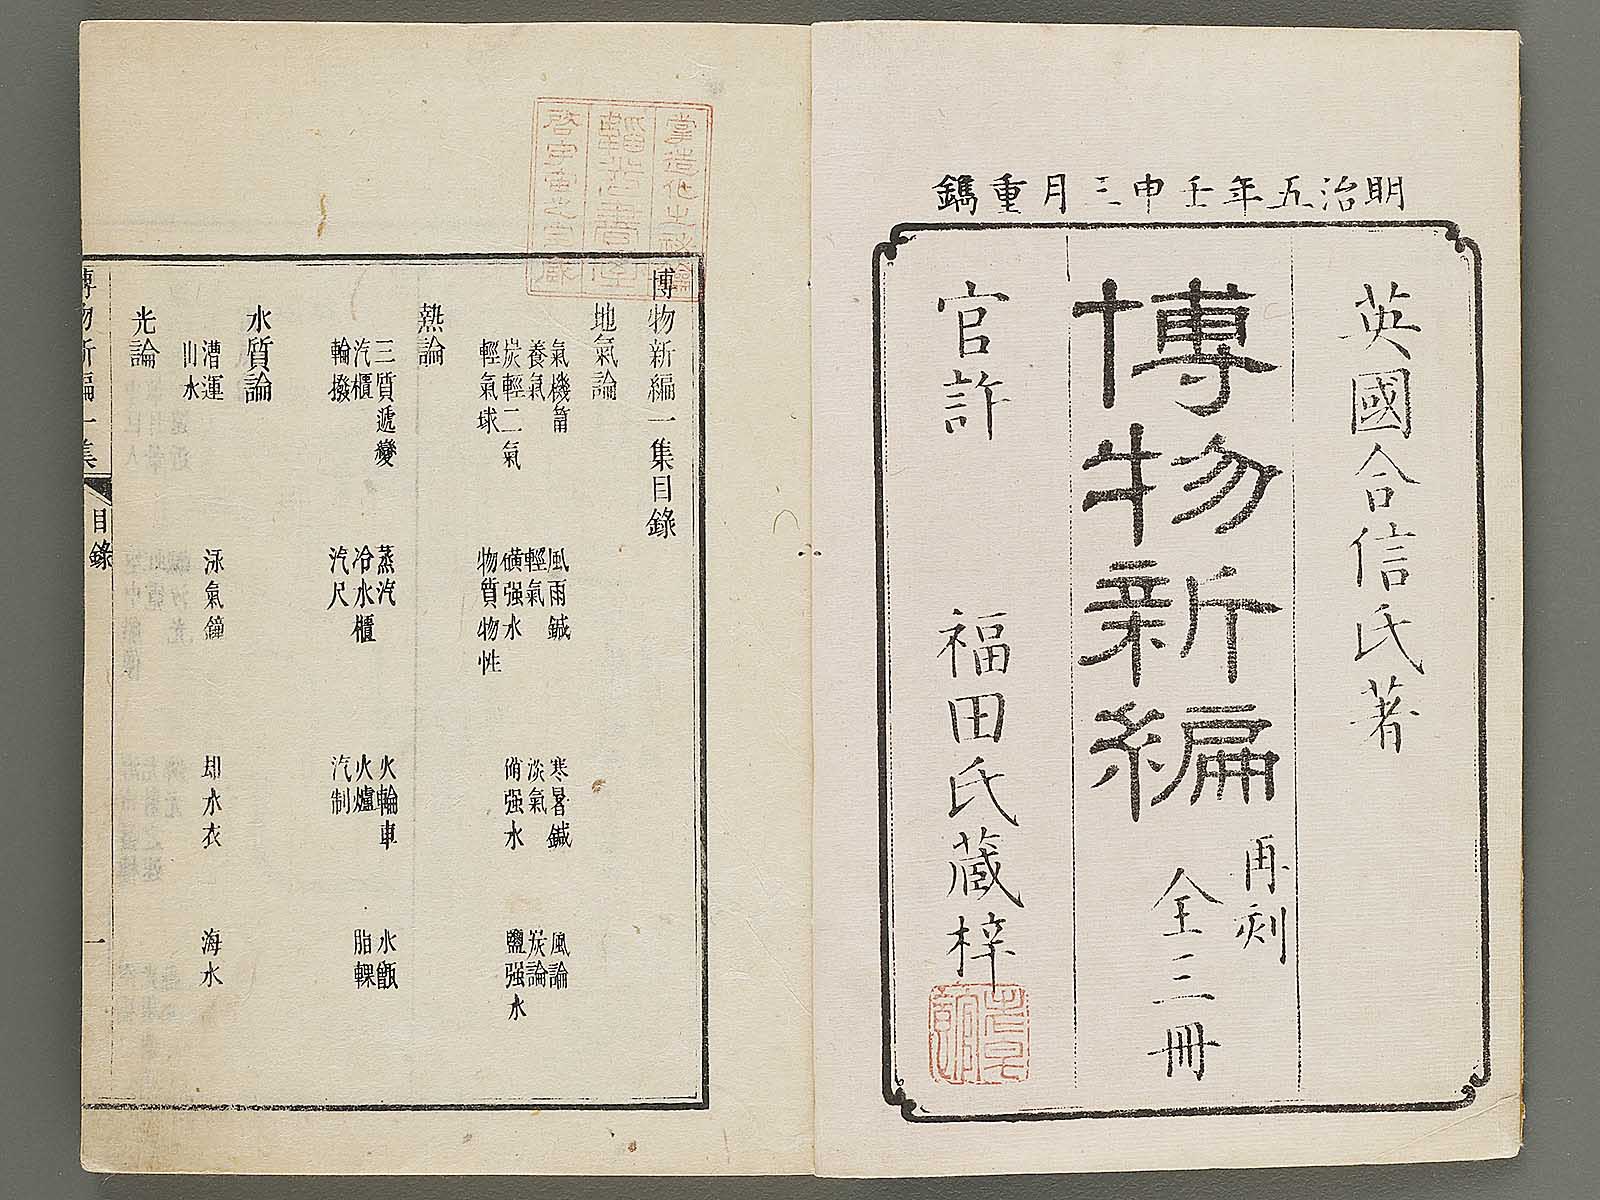 明治五年壬申三月重鐫
英國合信氏著
博物新編
再刻
全三冊
官許 福田氏蔵梓
博物新編一集目錄
地氣論
氣機筩 風雨鍼 寒暑鍼 風論
養氣 輕氣 淡氣 炭論
炭輕二氣 磺强水 硝强水 鹽强水
輕氣球 物質物性
熱論
三質遞變 蒸汽 火輪車 水甑
汽櫃 冷水櫃 火爐 脂輠
輪撥 汽尺 汽制
水質論
漕運 泳氣鐘 却水衣 海水
山水
光論
博物新編一集 目錄 一